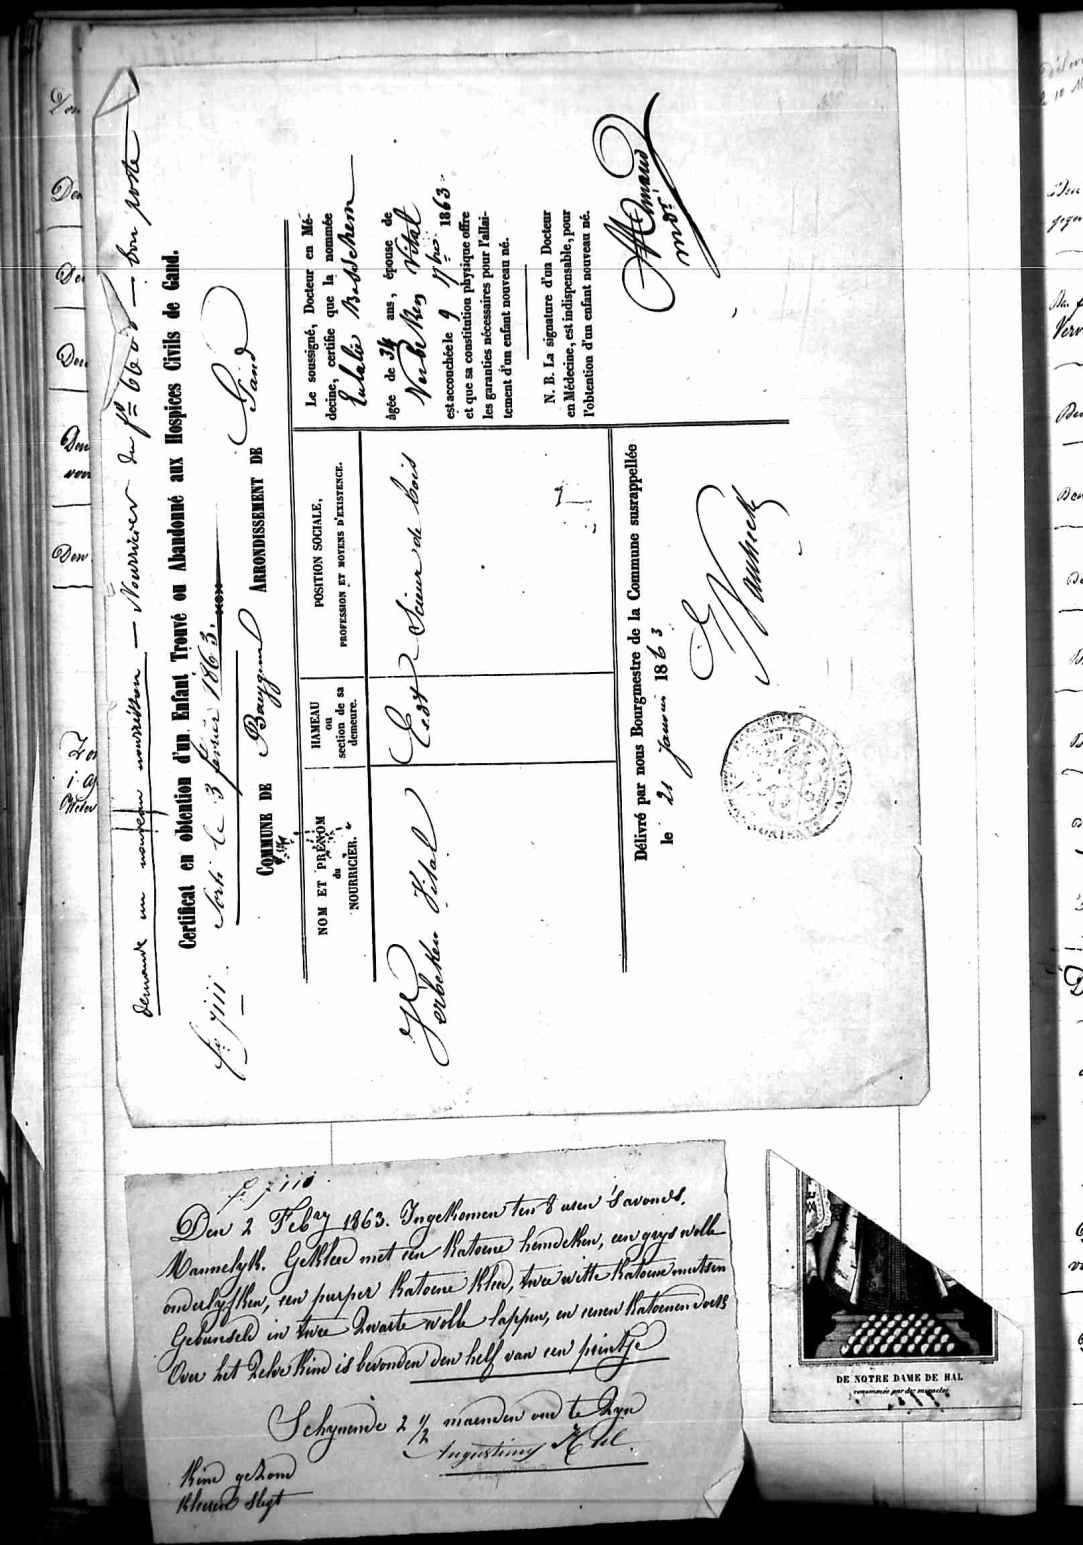 demande un nouveau nourrisson — Nourricier du fo 6608 — bon poste
Certificat en obtention d'un Enfant Trouvé ou Abandonné aux Hospices Civils de Gand.
fo 7111. Sorti le 3 février 1863.
COMMUNE DE Baeygem ARRONDISSEMENT DE Gand
NOM ET PRÉNOM
du
NOURRICIER.
HAMEAU
ou
section de sa
demeure.
POSITION SOCIALE,
PROFESSION ET MOYENS D'EXISTENCE.
Verbeken Vital
Scieur de bois
Le soussigné, Docteur en Mé-
decine, certifie que la nommée
Eulalie
âgée de 34 ans, épouse de
Verbeken Vital
est accouchée le 9 7bre 1863
et que sa constitution physique offre
les garanties nécessaires pour l'allai-
tement d'un enfant nouveau né.
N. B. La signature d'un Docteur
en Médecine, est indispensable, pour
l'obtention d'un enfant nouveau né.
Délivré par nous Bourgmestre de la Commune susrappellée
le 21 Janvier 1863
fo 7111.
Den 2 Febry 1863. Ingekomen ten 8 uren 's avonds.
Mannelyk. Gekleed met een katoene hemdeken, een grys wolle
onderlyfken, een purper katoene kleed, twee witte katoene mutsen
Gebunseld in twee zwarte wolle lappen, en eenen katoenen doek
Over het zelve kind is bevonden den helf van een peintje
Schynende 2 1/2 maenden oud te zyn
Augustinus
Kind gezond
kleeren slegt
DE NOTRE DAME DE HAL
renommée par des miracles